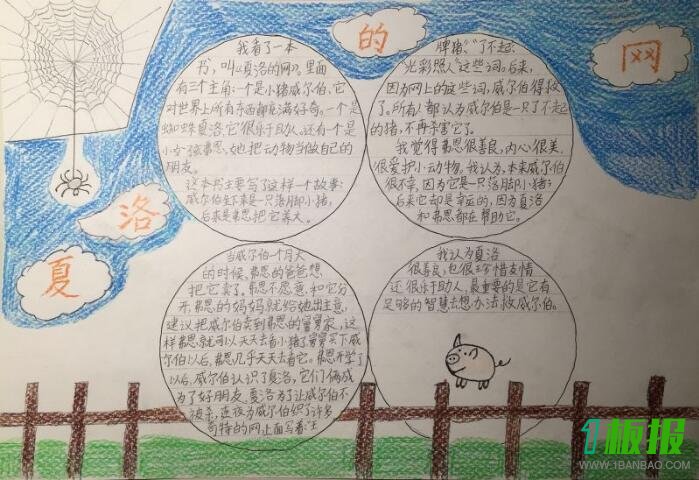 夏洛的网
我看了一本
书，叫《夏洛的网》。里面
有三个主角：一个是小猪威尔伯、它
对世界上所有东西都充满好奇。一个是
蜘蛛夏洛，它很乐于助人，还有一个是
小女孩弗恩，她把动物当做自己的
朋友。
这本书主要写了这样一个故事：
威尔伯生下来是一只落脚小猪，
后来是弗恩把它养大。
当威尔伯一个月大
的时候，弗恩的爸爸想
把它卖了。弗恩不愿意，和它分
开，弗恩的妈妈就给她出主意，
建议把威尔伯卖到弗恩的舅舅家，这
样弗恩就可以天天去看小猪了舅舅买下威
尔伯以后，弗恩几乎天天去看它。弗恩开学了
以后，威尔伯认识了夏洛，它们俩成
为了好朋友，夏洛为了让威尔伯不
被杀，连夜为威尔伯织了许多
奇特的网上面写着“王
牌猪”“了不起”
光彩照人”这些词。后来，
因为网上的这些词，威尔伯得救
了。所有人都认为威尔伯是一只了不起
的猪，不再杀害它了。
我觉得弗恩很善良，内心很美，
很爱护小动物。我认为，本来威尔伯
很不幸，因为它是一只落脚小猪；
后来它却是幸运的，因为夏洛
和弗恩都在帮助它。
我认为夏洛
很善良，也很珍惜友情
还很乐于助人，最重要的是它有
足够的智慧去想办法救威尔伯。
1板报
WWW.1BANBAO.COM